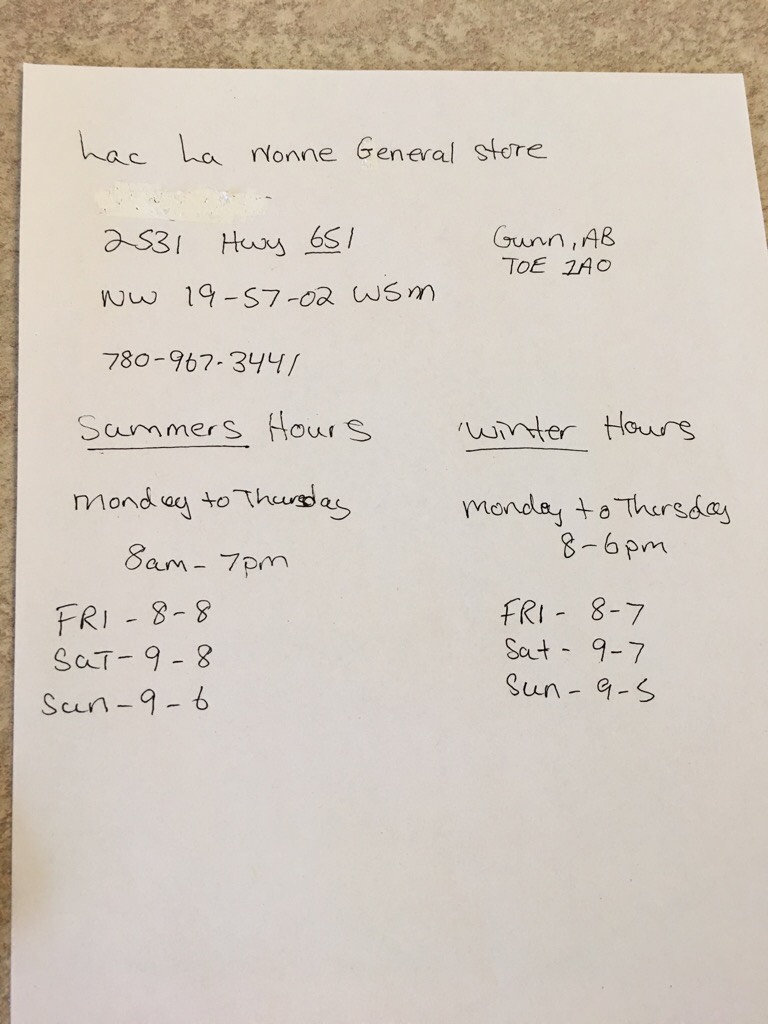 Lac La Nonne General Store
2531 Hwy 651
Gunn, AB
T0E 1A0
NW 19-57-02 W5m
780-967-3441
Summers Hours
Monday to Thursday
8am - 7pm
FRI - 8-8
SaT - 9 - 8
Sun - 9 - 6
Winter Hours
Monday to Thursday
8-6pm
FRI - 8-7
Sat - 9-7
Sun - 9-5